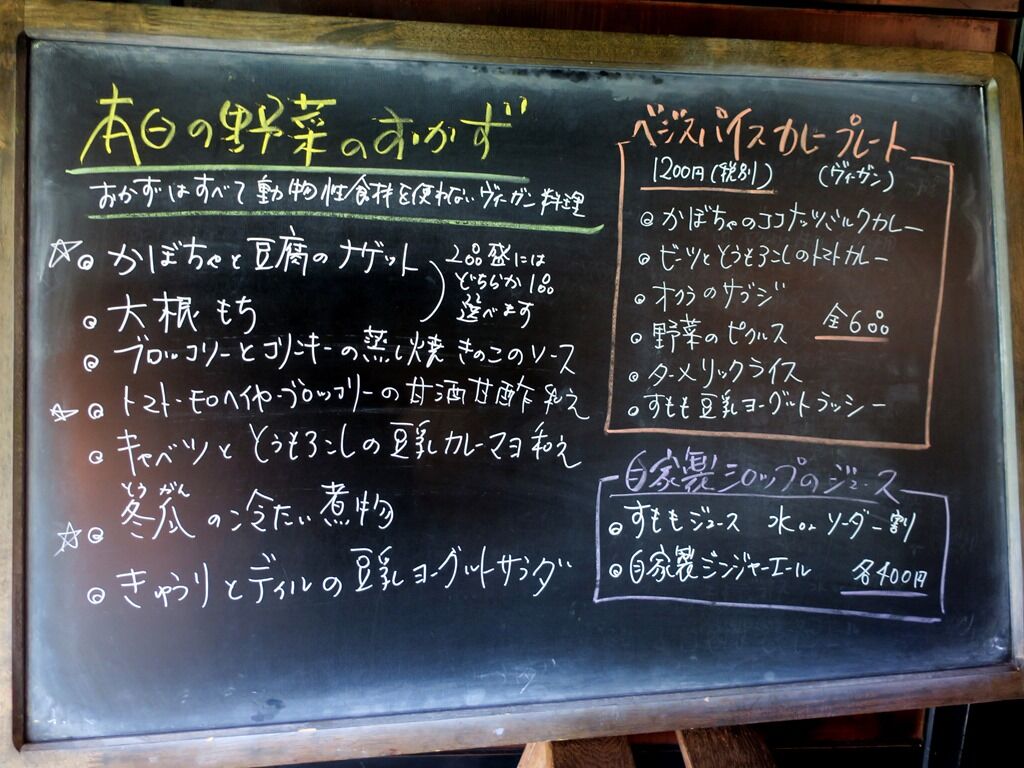 本日の野菜のおかず
おかずはすべて動物性食材を使わないヴィーガン料理
☆◎かぼちゃと豆腐のナゲット
2品盛には
どちらか1品
選べます
◎大根もち
◎ブロッコリーとコリンキーの蒸し焼きのこのソース
☆◎トマト・モロヘイヤ・ブロッコリーの甘酒甘酢和え
◎キャベツととうもろこしの豆乳カレーマヨ和え
とうがん
☆◎冬瓜の冷たい煮物
◎きゅうりとディルの豆乳ヨーグルトサラダ
ベジスパイスカレープレート
1200円(税別) (ヴィーガン)
◎かぼちゃのココナッツミルクカレー
◎ビーツととうもろこしのトマトカレー
◎オクラのサブジ
◎野菜のピクルス 全6品
◎ターメリックライス
◎すもも豆乳ヨーグルトラッシー
自家製シロップのジュース
◎すももジュース 水orソーダー割
◎自家製ジンジャーエール 各400円